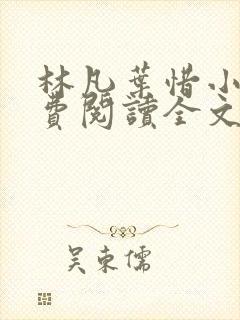 林凡葉惜小
費閱讀全文
吴東儒